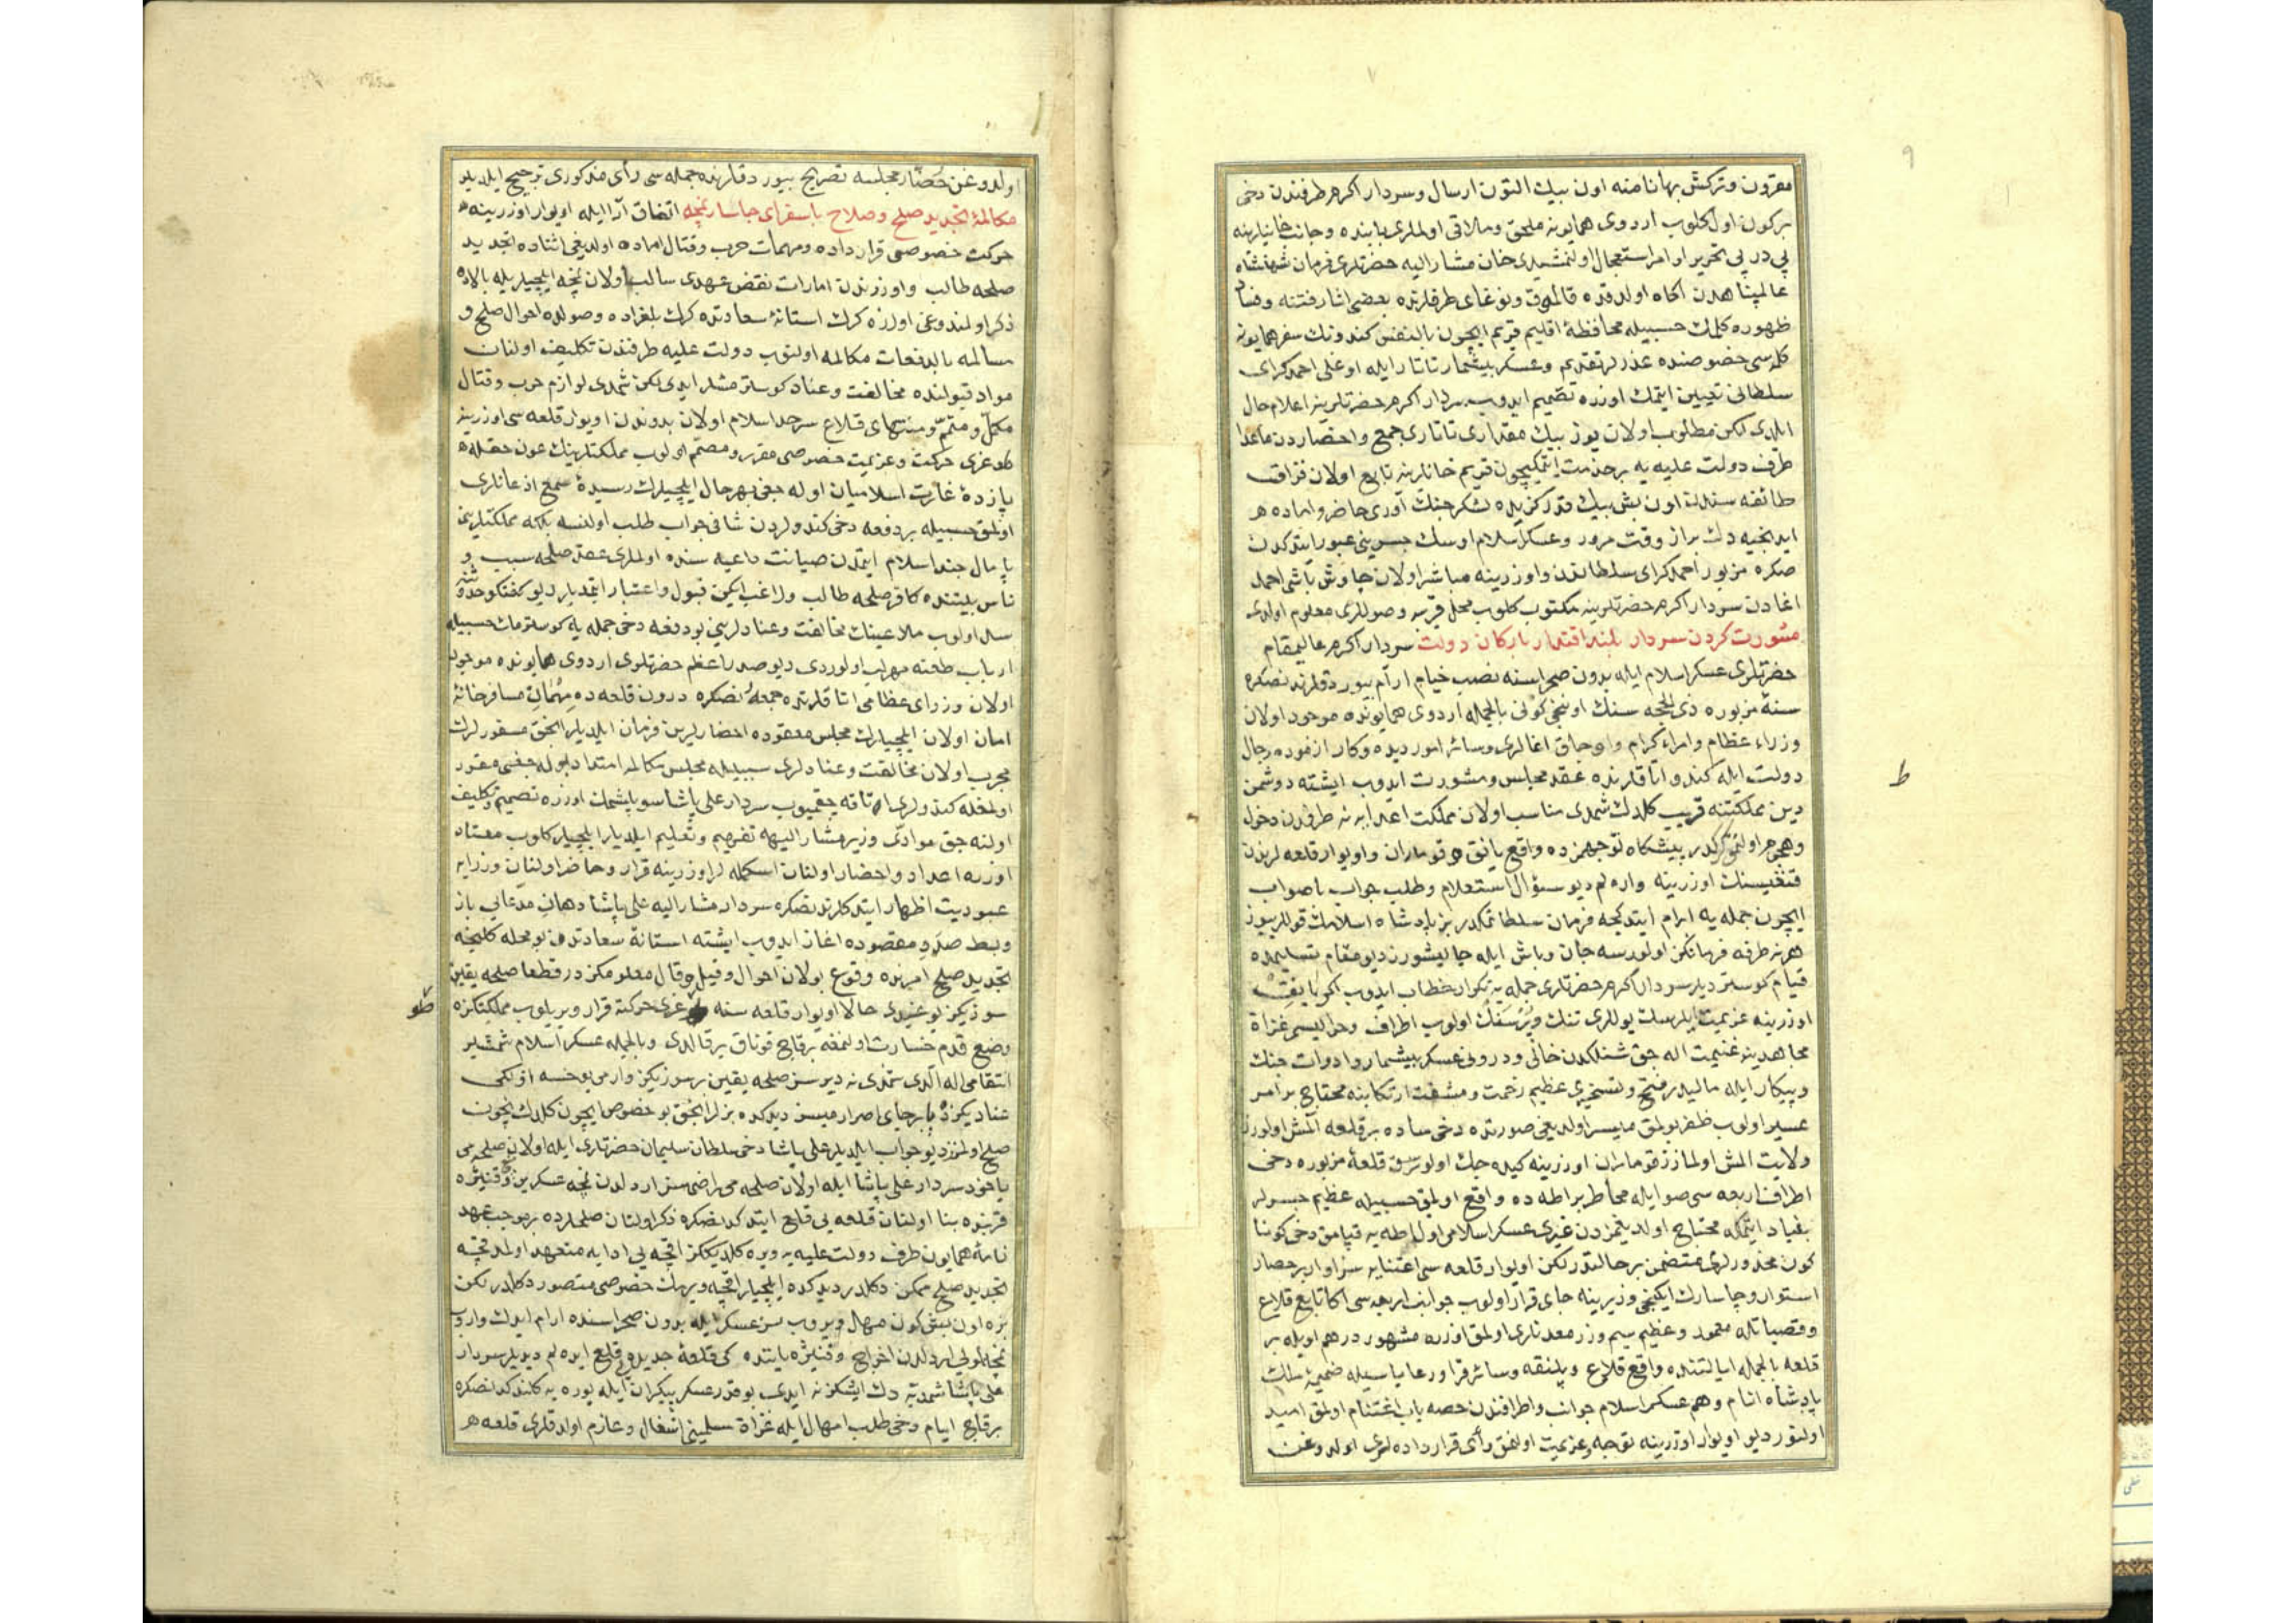 مقرون وتركش بهانامنه اون بيك التون ارسال وسردار اكرم طرفندن دخی
بركون اول كلوب اردوی همايونه ملحق وملاقی اولملری بابنده وجانب خانيلرينه
پی درپی تحرير اوامر استعجال اولنمشيدی خان مشاراليه حضرتلری فرمان شهنشاه
عالمپناهدن آكاه اولدقده قالموق ونوغای طرفلرنده بعضی اثار فتنه وفساد
ظهوره كلمك حسبيله محافظۀ اقليم قريم ايچون بالنفس كندونك سفر همايونه
كلمسی خصوصنده عذرلر تقديم وعسكر بيشمار تاتار ايله اوغلی احمد كرای
سلطانی تعيين ايتمك اوزره تصميم ايدوب سردار اكرم حضرتلرينه اعلام حال
ايلدی لكن مطلوب اولان يوز بيك مقداری تاتاری جمع واحضاردن ماعدا
طرف دولت عليه يه برخدمت ايتمكيچون قريم خانلرينه تابع اولان قزاق
طائفه سندن اون بش بيك قدر كزيده لشكر جنك آوری حاضر واماده
ايدنجيه دك براز وقت مرور وعسكر اسلام اوسك جسرينی عبور ايتدكدن
صكره مزبور احمد كرای سلطاندن واوزرينه مباشر اولان چاوش باشی احمد
اغادن سردار اكرم حضرتلرينه مكتوب كلوب محل قريبه وصوللری معلوم اولدی
مشورت كردن سردار بلند اقتدار باركان دولت سردار اكرم عاليمقام
حضرتلری عسكر اسلام ايله بدون صحراسنه نصب خيام آرام بيوردقلرندنصكره
سنۀ مزبوره ذی الحجه سنك اونجی كونی بالجمله اردوی همايونده موجود اولان
وزراء عظام وامراء كرام واوجاق اغالری وسائر امور ديده وكار ازموده رجال
دولت ايله كندو اتاقلرنده عقد مجلس ومشورت ايدوب ايشته دوشمن
دين مملكتنه قريب كلدك شمدی مناسب اولان مملكت اعدايه نه طرفدن دخول
وهجوم اولنمق كركدر پيشكاه توجهمزده واقع يانق وقوماران واويوار قلعه لرندن
قنغيسنك اوزرينه واره لم ديو سؤال استعلام وطلب جواب باصواب
ايچون جمله يه ابرام ايتدكجه فرمان سلطانمكدر بز پادشاه اسلامك قوللری‌يوز
هر نه طرفه فرمانكز اولورسه جان وباش ايله چاليشورز ديو مقام تسليمده
قيام كوسترديلر سردار اكرم حضرتلری جمله يه تكرار خطاب ايدوب اكر يانق
اوزرينه عزيمت ايلرسك يوللری تنك وپرسنك اولوب اطراف وحواليسی غزاة
مجاهدينه غنيمت اله جق شنلكدن خالی ودرونی عسكر بيشمار وادوات جنك
وپيكار ايله ماليدر فتح وتسخيری عظيم زحمت ومشقت ارتكابنه محتاج برامر
عسير اولوب ظفر بولمق ميسر اولديغی صورتده دخی ساده برقلعه آلمش اولورز
ولايت المش اولمازز قوماران اوزرينه كيده جك اولورسق قلعۀ مزبوره دخی
اطراف اربعه سی صو ايله محاط براطه ده واقع اولمق حسبيله عظيم جسرلر
بنياد ايتمكه محتاج اولديغمزدن غيری عسكر اسلامی اول اطه يه قپامق دخی كوناكون
كون محذورلری متضمن برحالتدر لكن اويوار قلعه سی اعتنايه سزاوار برحصار
استوار وچاسارك ايكنجی وزيرينه جای قرار اولوب جوانب اربعه سی اكا تابع قلاع
وقصبات ايله معمور وعظيم سيم وزر معدنلری اولمق اوزره مشهوردر هم اويله بر
قلعه بالجمله ايالتنده واقع قلاع وپلنقه وسائر قرا ورعاياسيله ضميمۀ ملك
پادشاه انام وهم عسكر اسلام جوانب واطرافندن حصه ياب اغتنام اولمق اميد
اولنور ديو اويوار اوزرينه توجه وعزيمت اولنمق رأی قرارداده لری اولدوغن
اولدوغن حضار مجلسه تصريح بيوردقلرنده جمله سی رأی مذكوری ترجيح ايلديلر
مكالمۀ تجديد صلح وصلاح باسفرای چاسار نمچه اتفاق آرا ايله اويوار اوزرينه
حركت خصوصی قرارداده ومهمات حرب وقتال اماده اولديغی اثناده تجديد
صلحه طالب واوزرندن امارات نقض عهدی سالب اولان نمچه ايلچيلريله بالاده
ذكر اولندوغی اوزره كرك استانۀ سعادتده كرك بلغراده وصولده احوال صلح و
مسالمه بالدفعات مكالمه اولنوب دولت عليه طرفندن تكليف اولنان
مواد قبولنده مخالفت وعناد كوسترمشلر ايدی لكن شمدی لوازم حرب وقتال
مكمل ومتمم ومنتهای قلاع سرحد اسلام اولان بدوندن اويوار قلعه سی اوزرينه
طوغری حركت وعزيمت خصوصی مقرر ومصمم اولوب مملكتلرينك عون حقله
پازدۀ غارت اسلاميان اوله جغی بهر حال ايلچيلرك رسيدۀ سمع اذعانلری
اولمق حسبيله بردفعه دخی كندولردن شافی جواب طلب اولنسه بلكه مملكتلرينی
پايمال جند اسلام ايتمدن صيانت داعيه سنده اولملری عقد صلحه سبب و
ناس بيننده كافر صلحه طالب وراغب ايكن قبول واعتبار ايتمديلر ديو كفتكو حدوثنه
سد اولوب ملاعينك مخالفت وعنادلرينی بودفعه دخی جمله يه كوسترمك حسبيله
ارباب طعنه مهر لب اولوردی ديو صدر اعظم حضرتلری اردوی همايونده موجود
اولان وزرای عظامی اتاقلرنده جمع ايتدكدنصكره درون قلعه ده مهمان مسافرخانۀ
امان اولان ايلچيلرك مجلس معقوده احضارلرين فرمان ايلديلر انجق مسفورلرك
مجرب اولان مخالفت وعنادلری سببيله مجلس مكالمه امتداد بوله جغی مقرر
اولمغله كندولری اتاقه چقميوب سردار علی پاشا سويلشمك اوزره تصميم وتكليف
اولنه جق موادی وزير مشاراليهه تفهيم وتعليم ايلديلر ايلچيلر كلوب معتاد
اوزره اعداد واحضار اولنان اسكمله لر اوزرينه قرار وحاضر اولنان وزرايه
عبوديت اظهار ايتدكلرندنصكره سردار مشاراليه علی پاشا دهان مدعايی باز
وبسط صدد مقصوده اغاز ايدوب ايشته استانۀ سعادتدن بومحله كلنجه
تجديد صلح امرنده وقوع بولان احوال وقيل وقال معلومكزدر قطعا صلحه يقين
سوزيكز يوغيدی حالا اويوار قلعه سنه طوغری حركته قرار ويريلوب مملكتكزه
وضع قدم خسارت اولنمغه برقاچ قوناق يرقالدی وبالجمله عسكر اسلام شمشير
انتقامی اله آلدی شمدی نه ديرسز صلحه يقين برسوزيكز وارمی يوخسه اولكی
عناديكزده پابرجای اصرارميسز ديدكده بزلر انجق بوخصوص ايچون كلدك نيچون
صلح اولمزز ديو جواب ايلديلر علی پاشا دخی سلطان سليمان حضرتلری ايله اولان صلحه می
ياخود سردار علی پاشا ايله اولان صلحه می راضی سز اردلدن نمچه عسكرين وقنيژه
قربنده بنا اولنان قلعه يی قلع ايتدكدنصكره ذكر اولنان صلحلرده برموجب عهد
نامۀ همايون طرف دولت عليه يه ويره كلديككز اقچه يی ادايه متعهد اولمدقجه
تجديد صلح ممكن دكلدر ديدكده ايلچيلر اقچه ويرمك خصوصی متصور دكلدر لكن
بزه اون بش كون مهال ويروب سز عسكر ايله بدون صحراسنده ارام ايدك واروب
نمچه لولی اردلدن اخراج وقنيژه ياننده كی قلعۀ جديدی قلع ايده لم ديديلر سردار
علی پاشا شمديه دك ايشكز نه ايدی بوقدر عسكر بيكران ايله بورايه كلندكدنصكره
برقاچ ايام دخی طلب امهال ايله غزاة مسلمينی اشغال وعازم اولدقلری قلعه
ط
طو
٩